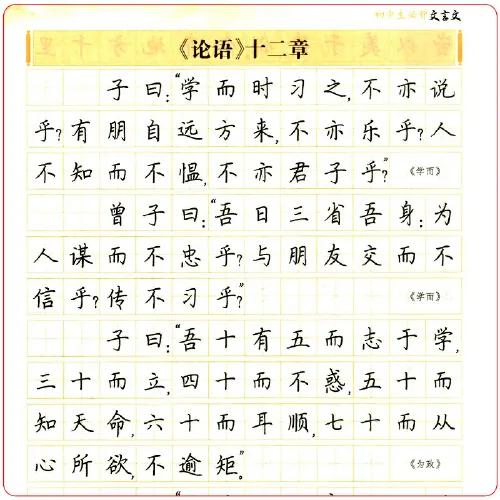 初中生必背文言文
《论语》十二章
子曰:“学而时习之,不亦说
乎?有朋自远方来,不亦乐乎?人
不知而不愠,不亦君子乎?”《学而》
曾子曰:“吾日三省吾身:为
人谋而不忠乎?与朋友交而不
信乎?传不习乎?”《学而》
子曰:“吾十有五而志于学,
三十而立,四十而不惑,五十而
知天命,六十而耳顺,七十而从
心所欲,不逾矩。”《为政》